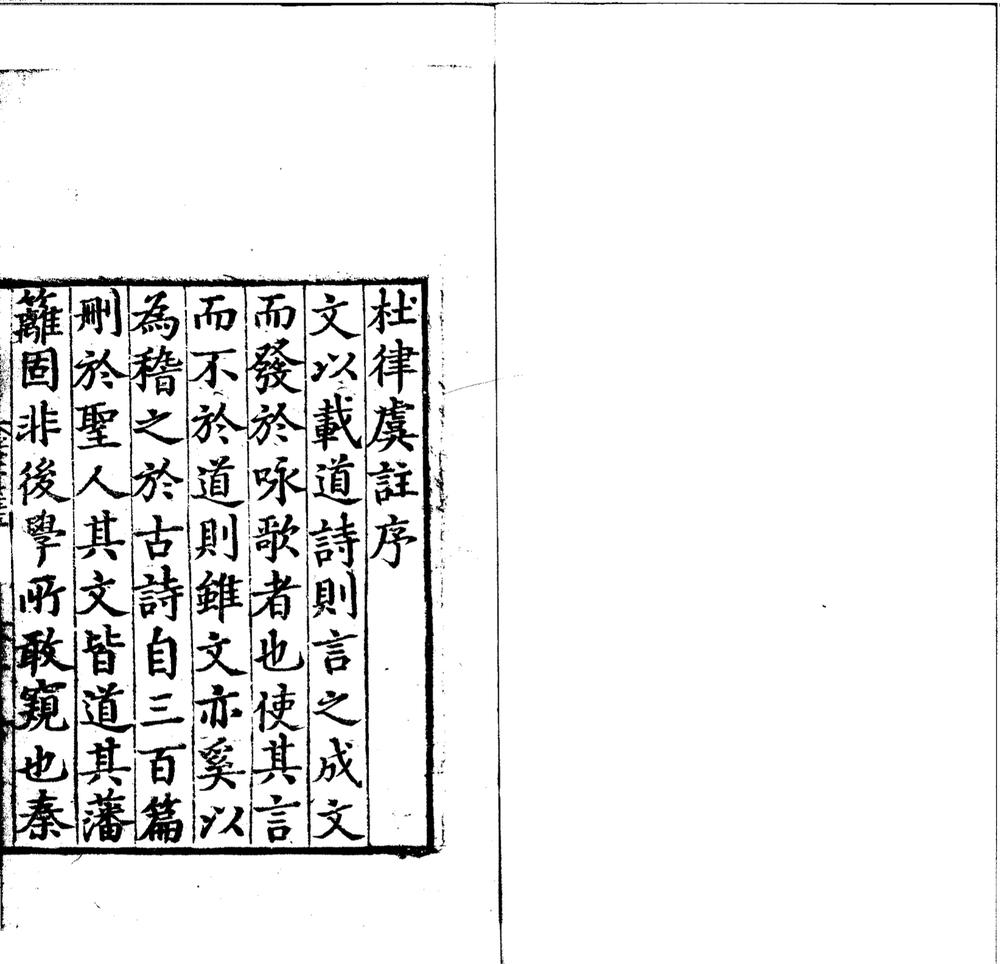 杜律虞註序
文以載道詩則言之成文
而發於咏歌者也使其言
而不於道則雖文亦奚以
為稽之於古詩自三百篇
刪於聖人其文皆道其藩
籬固非後學所敢窺也秦